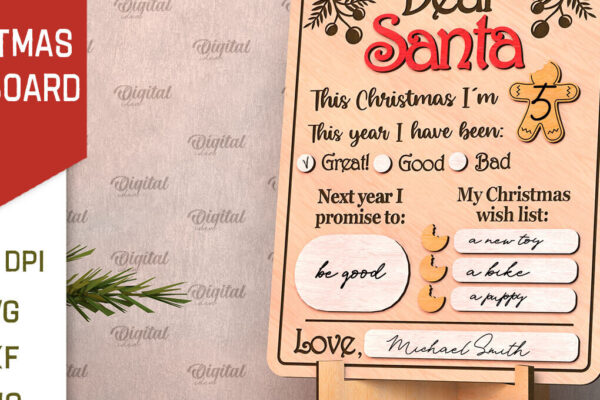 TMAS
BOARD
DPI
Dear
Santa
This Christmas I'm
5
This year I have been:
✓ Great! Good Bad
Next year I
promise to:
be good
My Christmas
wish list:
a new toy
a bike
a puppy
Love, Michael Smith
Digital
Digital
Digital
Digital
Digital
Digital
Digital
Digital
Digital
Digital